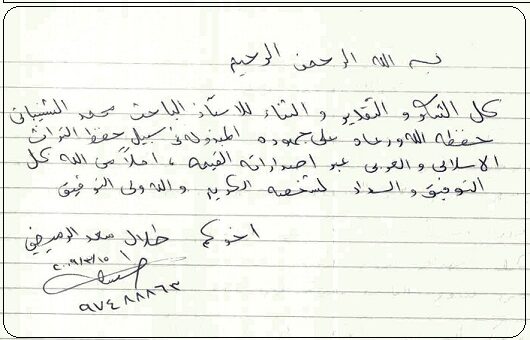 بسم الله الرحمن الرحيم
كل الشكر و التقدير و الثناء للاستاذ الباحث محمد الشيباني
حفظه الله ورعاه على جهوده المبذوله في سبيل حفظ التراث
الاسلامي و العربي عبر اصداراته القيمه ، املاً من الله كل
التوفيق و السداد لشخصه الكريم والله ولي التوفيق
اخوكم طلال سعد الرميضي
٢٠٠٩/٣/١٥
٩٧٤٨٨٨٦٣